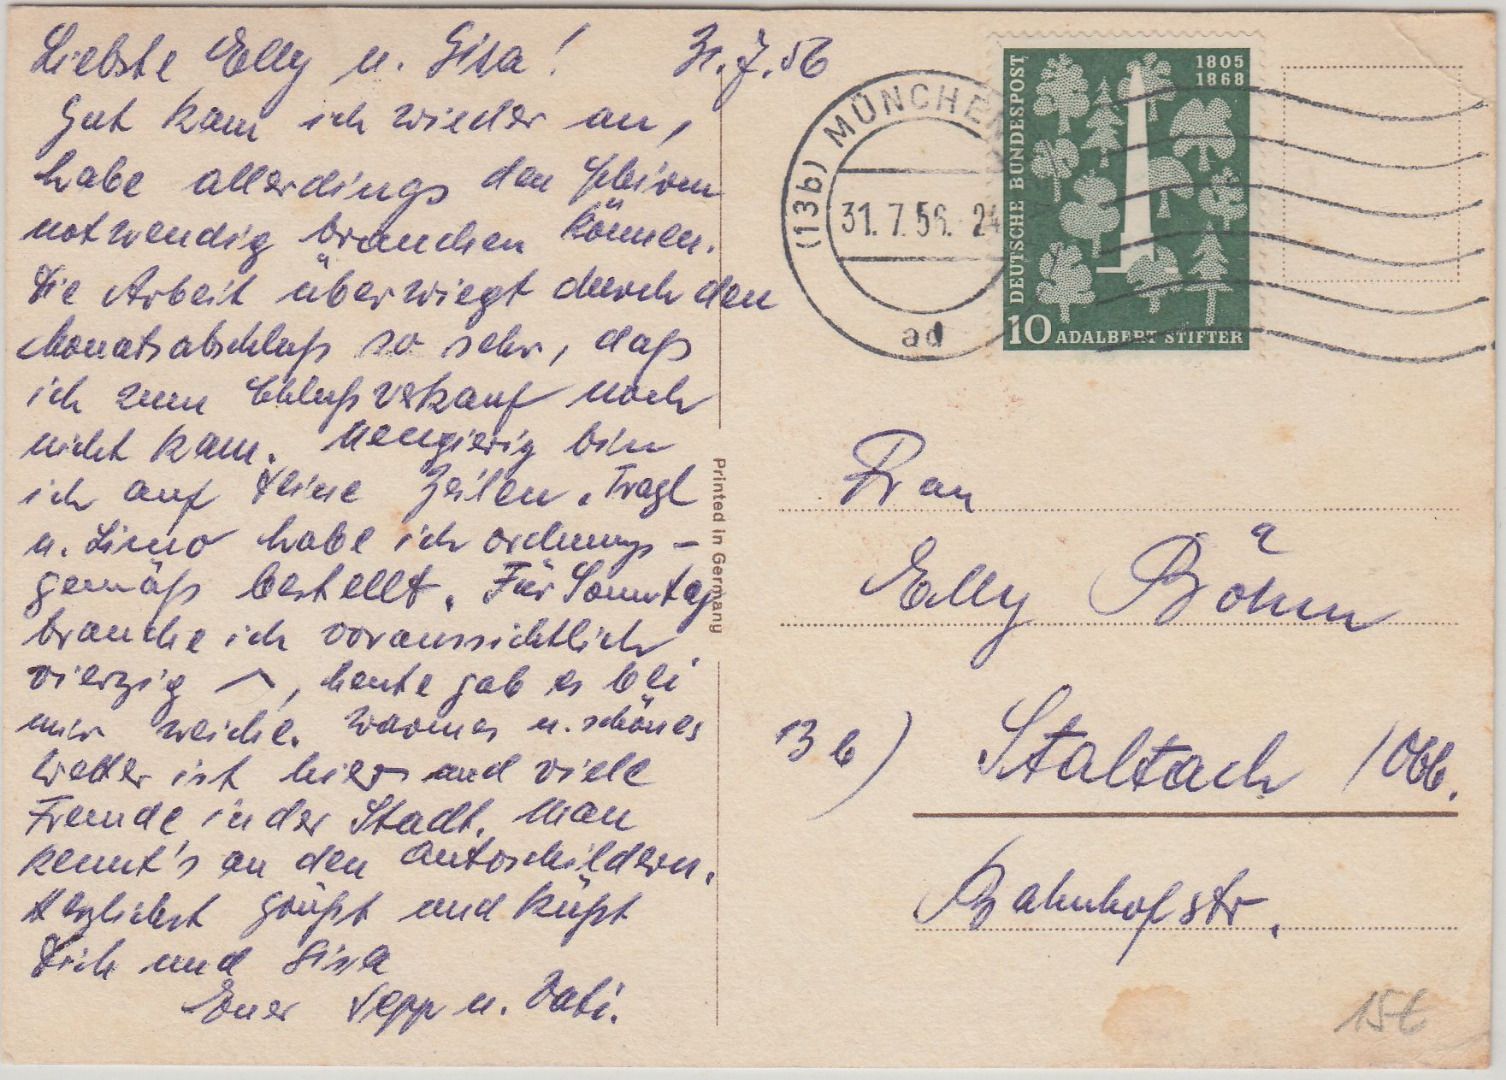 Liebste Elly u. Gisa! 31.7.56
Gut kam ich wieder an,
habe allerdings den Schirm
notwendig brauchen können.
Die Arbeit überwiegt durch den
Monatsabschluß so sehr, daß
ich zum Schlußverkauf noch
nicht kam. Neugierig bin
ich auf Deine Zeilen. Tragl
u. Limo habe ich ordnungs-
gemäß bestellt. Für Sonntag
brauche ich voraussichtlich
vierzig, heute gab es bei
mir weiche. Warmes u. schönes
Wetter ist hier und viele
Fremde in der Stadt. Man
kennt's an den Autoschildern.
Herzlichst grüßt und küßt
Dich und Gisa
Euer Sepp u. Vati.
Printed in Germany
(13b) MÜNCHEN
31.7.56.-24
ad
DEUTSCHE BUNDESPOST
1805
1868
10 ADALBERT STIFTER
Frau
Elly Böhm
13b) Staltach /Obb.
Bahnhofstr.
15€